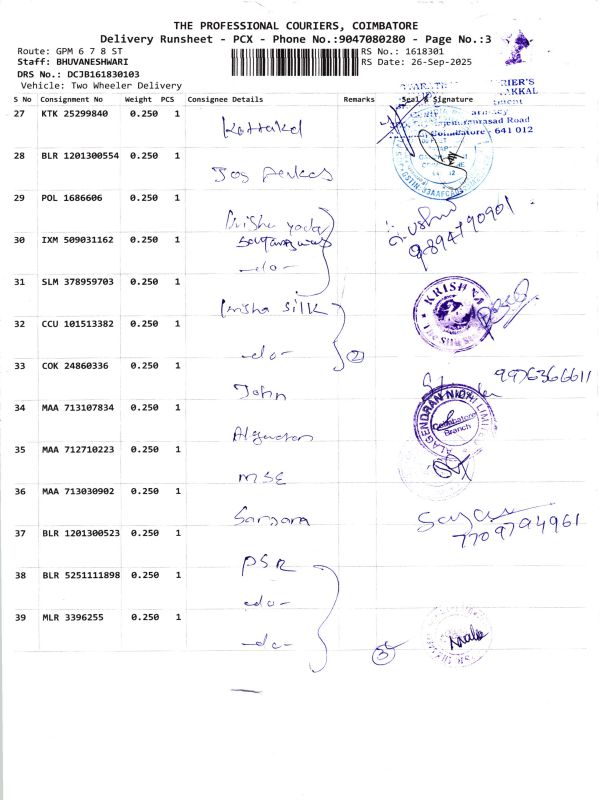 THE PROFESSIONAL COURIERS, COIMBATORE
Delivery Runsheet - PCX - Phone No.:9047080280 - Page No.:3
Route: GPM 6 7 8 ST RS No.: 1618301
Staff: BHUVANESHWARI RS Date: 26-Sep-2025
DRS No.: DCJB161830103
Vehicle: Two Wheeler Delivery
S No Consignment No Weight PCS Consignee Details Remarks Seal & Signature
27 KTK 25299840 0.250 1
Kottakal
Road
Coimbatore - 641 012
28 BLR 1201300554 0.250 1
Jos
29 POL 1686606 0.250 1
30 IXM 509031162 0.250 1
-do-
9894790901
31 SLM 378959703 0.250 1
KRISHNA
silk
32 CCU 101513382 0.250 1
-do- 2
33 COK 24860336 0.250 1
John 9976366611
34 MAA 713107834 0.250 1
ALAGENDRAN NIDHI LIMITED
Coimbatore
Branch
35 MAA 712710223 0.250 1
MSE
36 MAA 713030902 0.250 1
7709794961
37 BLR 1201300523 0.250 1
PSR
38 BLR 5251111898 0.250 1
-do-
39 MLR 3396255 0.250 1
-do- 3